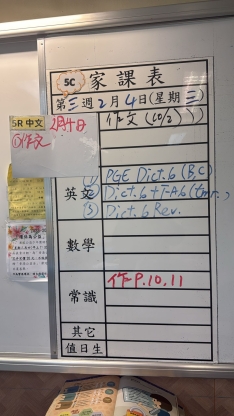 5C
家課表
第三週2月4日(星期三)
5R 中文
2月4日
①作文
作文(10/2)
英文
① PGE Dict.6 (B,C)
② Dict.6 + T.A.6
③ Dict.6 Rev.
數學
常識
作P.10,11
其它
值日生